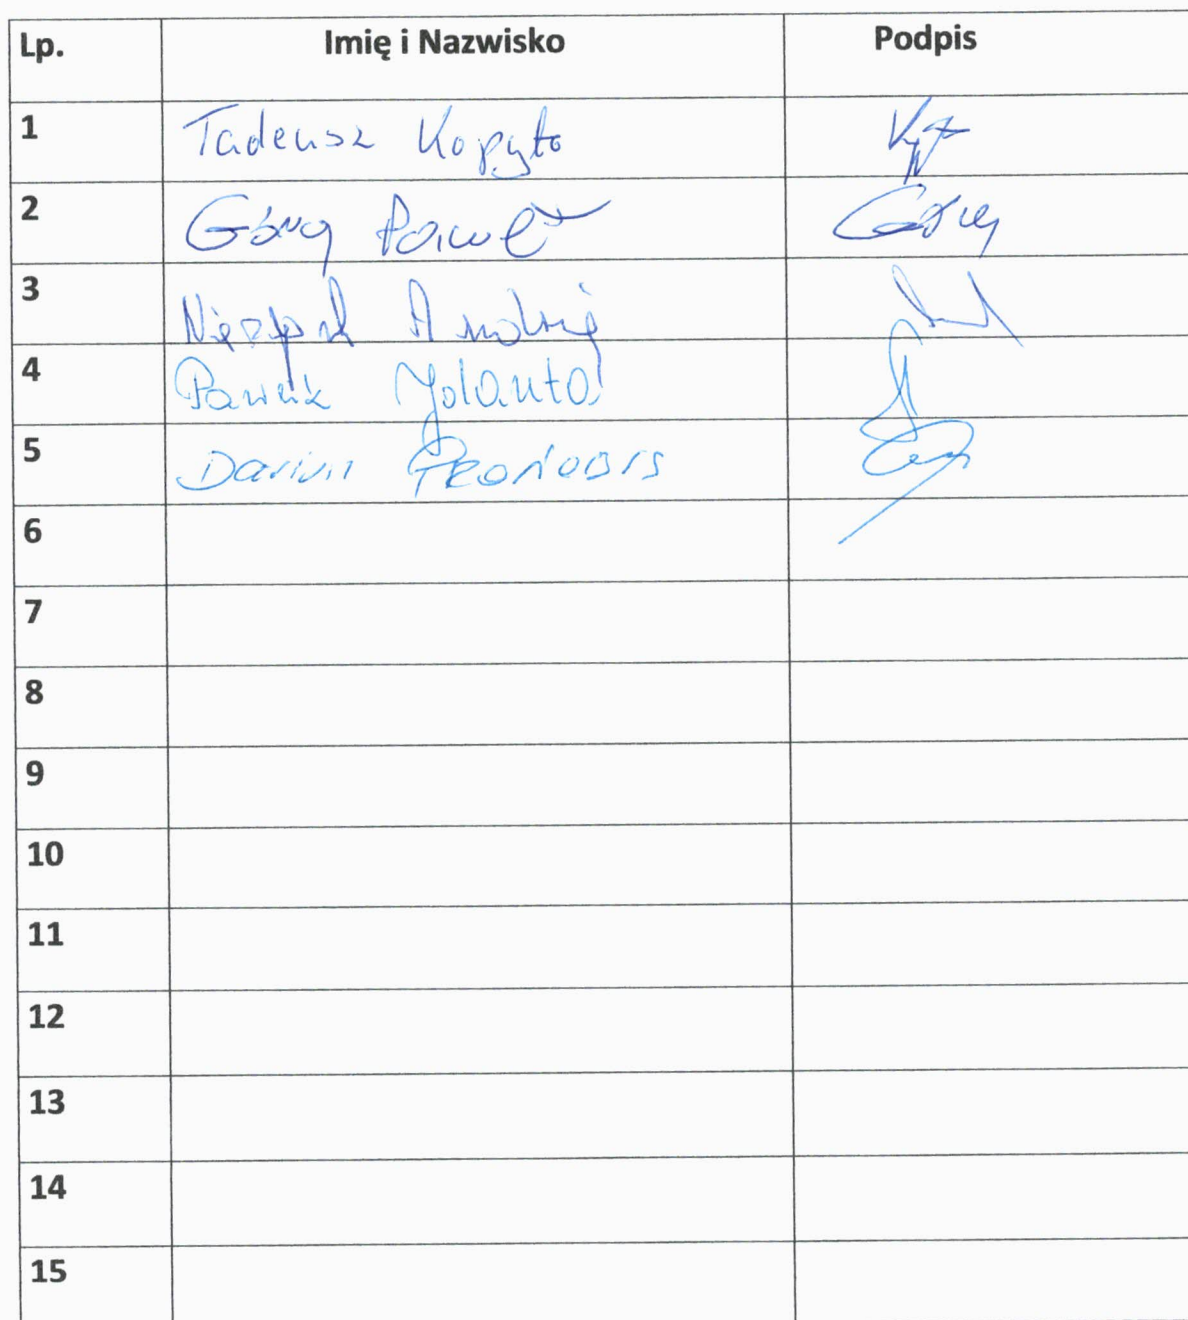 Lp. Imię i Nazwisko Podpis
1 Tadeusz Kopyto
2 Góry Paweł Góry
3 Andrzej
4 Jolanta
5 Dariusz
6
7
8
9
10
11
12
13
14
15